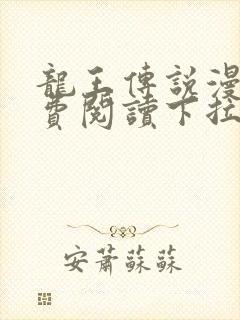 龍王傳說漫
費閱讀下拉
安蕭蘇蘇